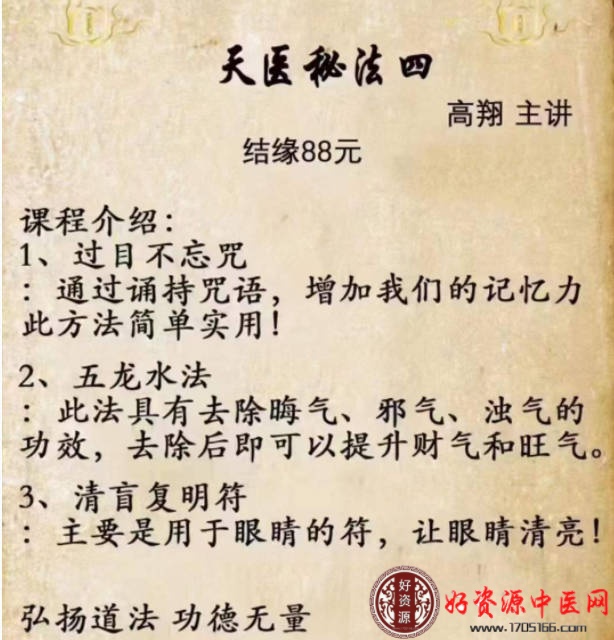 天医秘法四
高翔 主讲
结缘88元
课程介绍：
1、过目不忘咒
：通过诵持咒语，增加我们的记忆力
此方法简单实用！
2、五龙水法
：此法具有去除晦气、邪气、浊气的
功效，去除后即可以提升财气和旺气。
3、清盲复明符
：主要是用于眼睛的符，让眼睛清亮！
弘扬道法 功德无量
好资源
好资源中医网
www.1705166.com